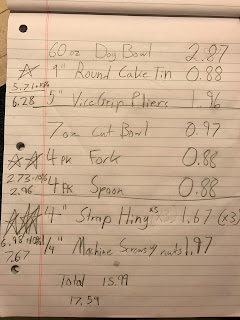 60 oz Dog Bowl 2.87
9" Round Cake Tin 0.88
5.71+10%
6.28 5" Vice Grip Pliers 1.96
7 oz Cat Bowl 0.97
4 pk Fork 0.88
2.73+10%
2.96 4 Pk Spoon 0.88
4" Strap Hing x3 1.67 (x3)
6.98+10%
7.67 1/4" Machine Screws & nuts 1.97
Total 15.99
17.59